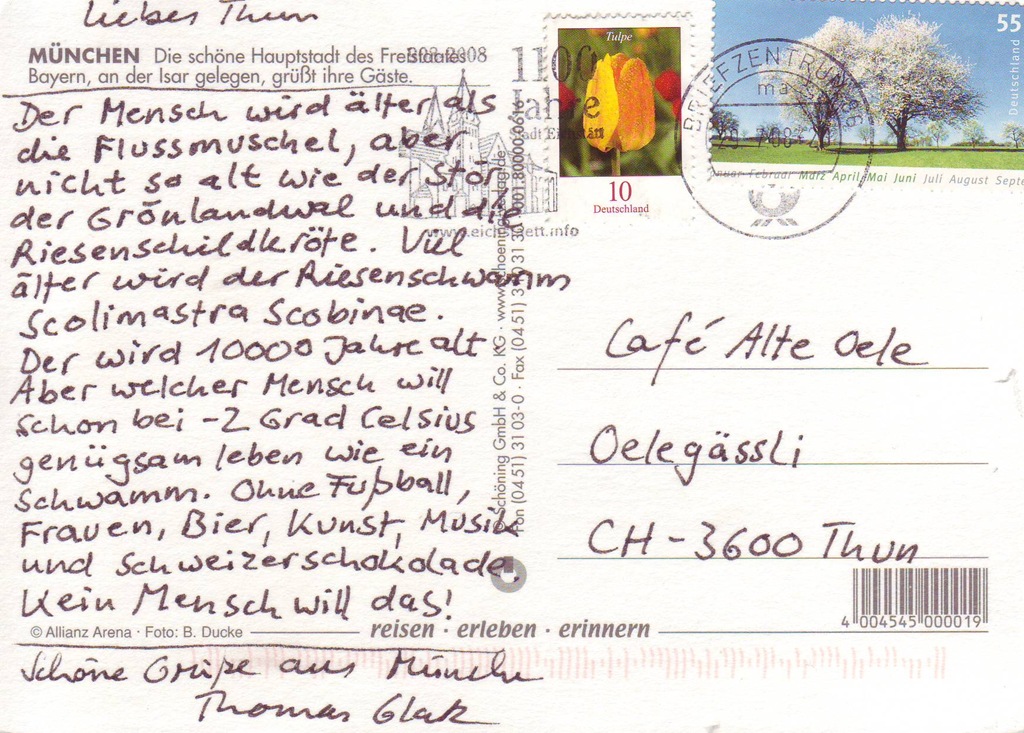 Liebes Thun
MÜNCHEN Die schöne Hauptstadt des Freistaates
Bayern, an der Isar gelegen, grüßt ihre Gäste.
Der Mensch wird älter als
die Flussmuschel, aber
nicht so alt wie der Stör
der Grönlandwal und die
Riesenschildkröte. Viel
älter wird der Riesenschwamm
Scolimastra Scobinae.
Der wird 10000 Jahre alt
Aber welcher Mensch will
schon bei -2 Grad Celsius
genügsam leben wie ein
Schwamm. Ohne Fußball,
Frauen, Bier, Kunst, Musik
und Schweizerschokolade.
Kein Mensch will das!
© Allianz Arena · Foto: B. Ducke
reisen · erleben · erinnern
Schöne Grüße aus München
Thomas Glatz
Schöning GmbH & Co. KG · www.schoening-verlag.de
Fon (04 51) 31 03-0 · Fax (04 51)
1100
Jahre
Stadt Eichstätt
www.eichstaett.info
Tulpe
10
Deutschland
BRIEFZENTRUM
55
Deutschland
Januar Februar März April Mai Juni Juli August Septe
Café Alte Oele
Oelegässli
CH-3600 Thun
4 004545 000019